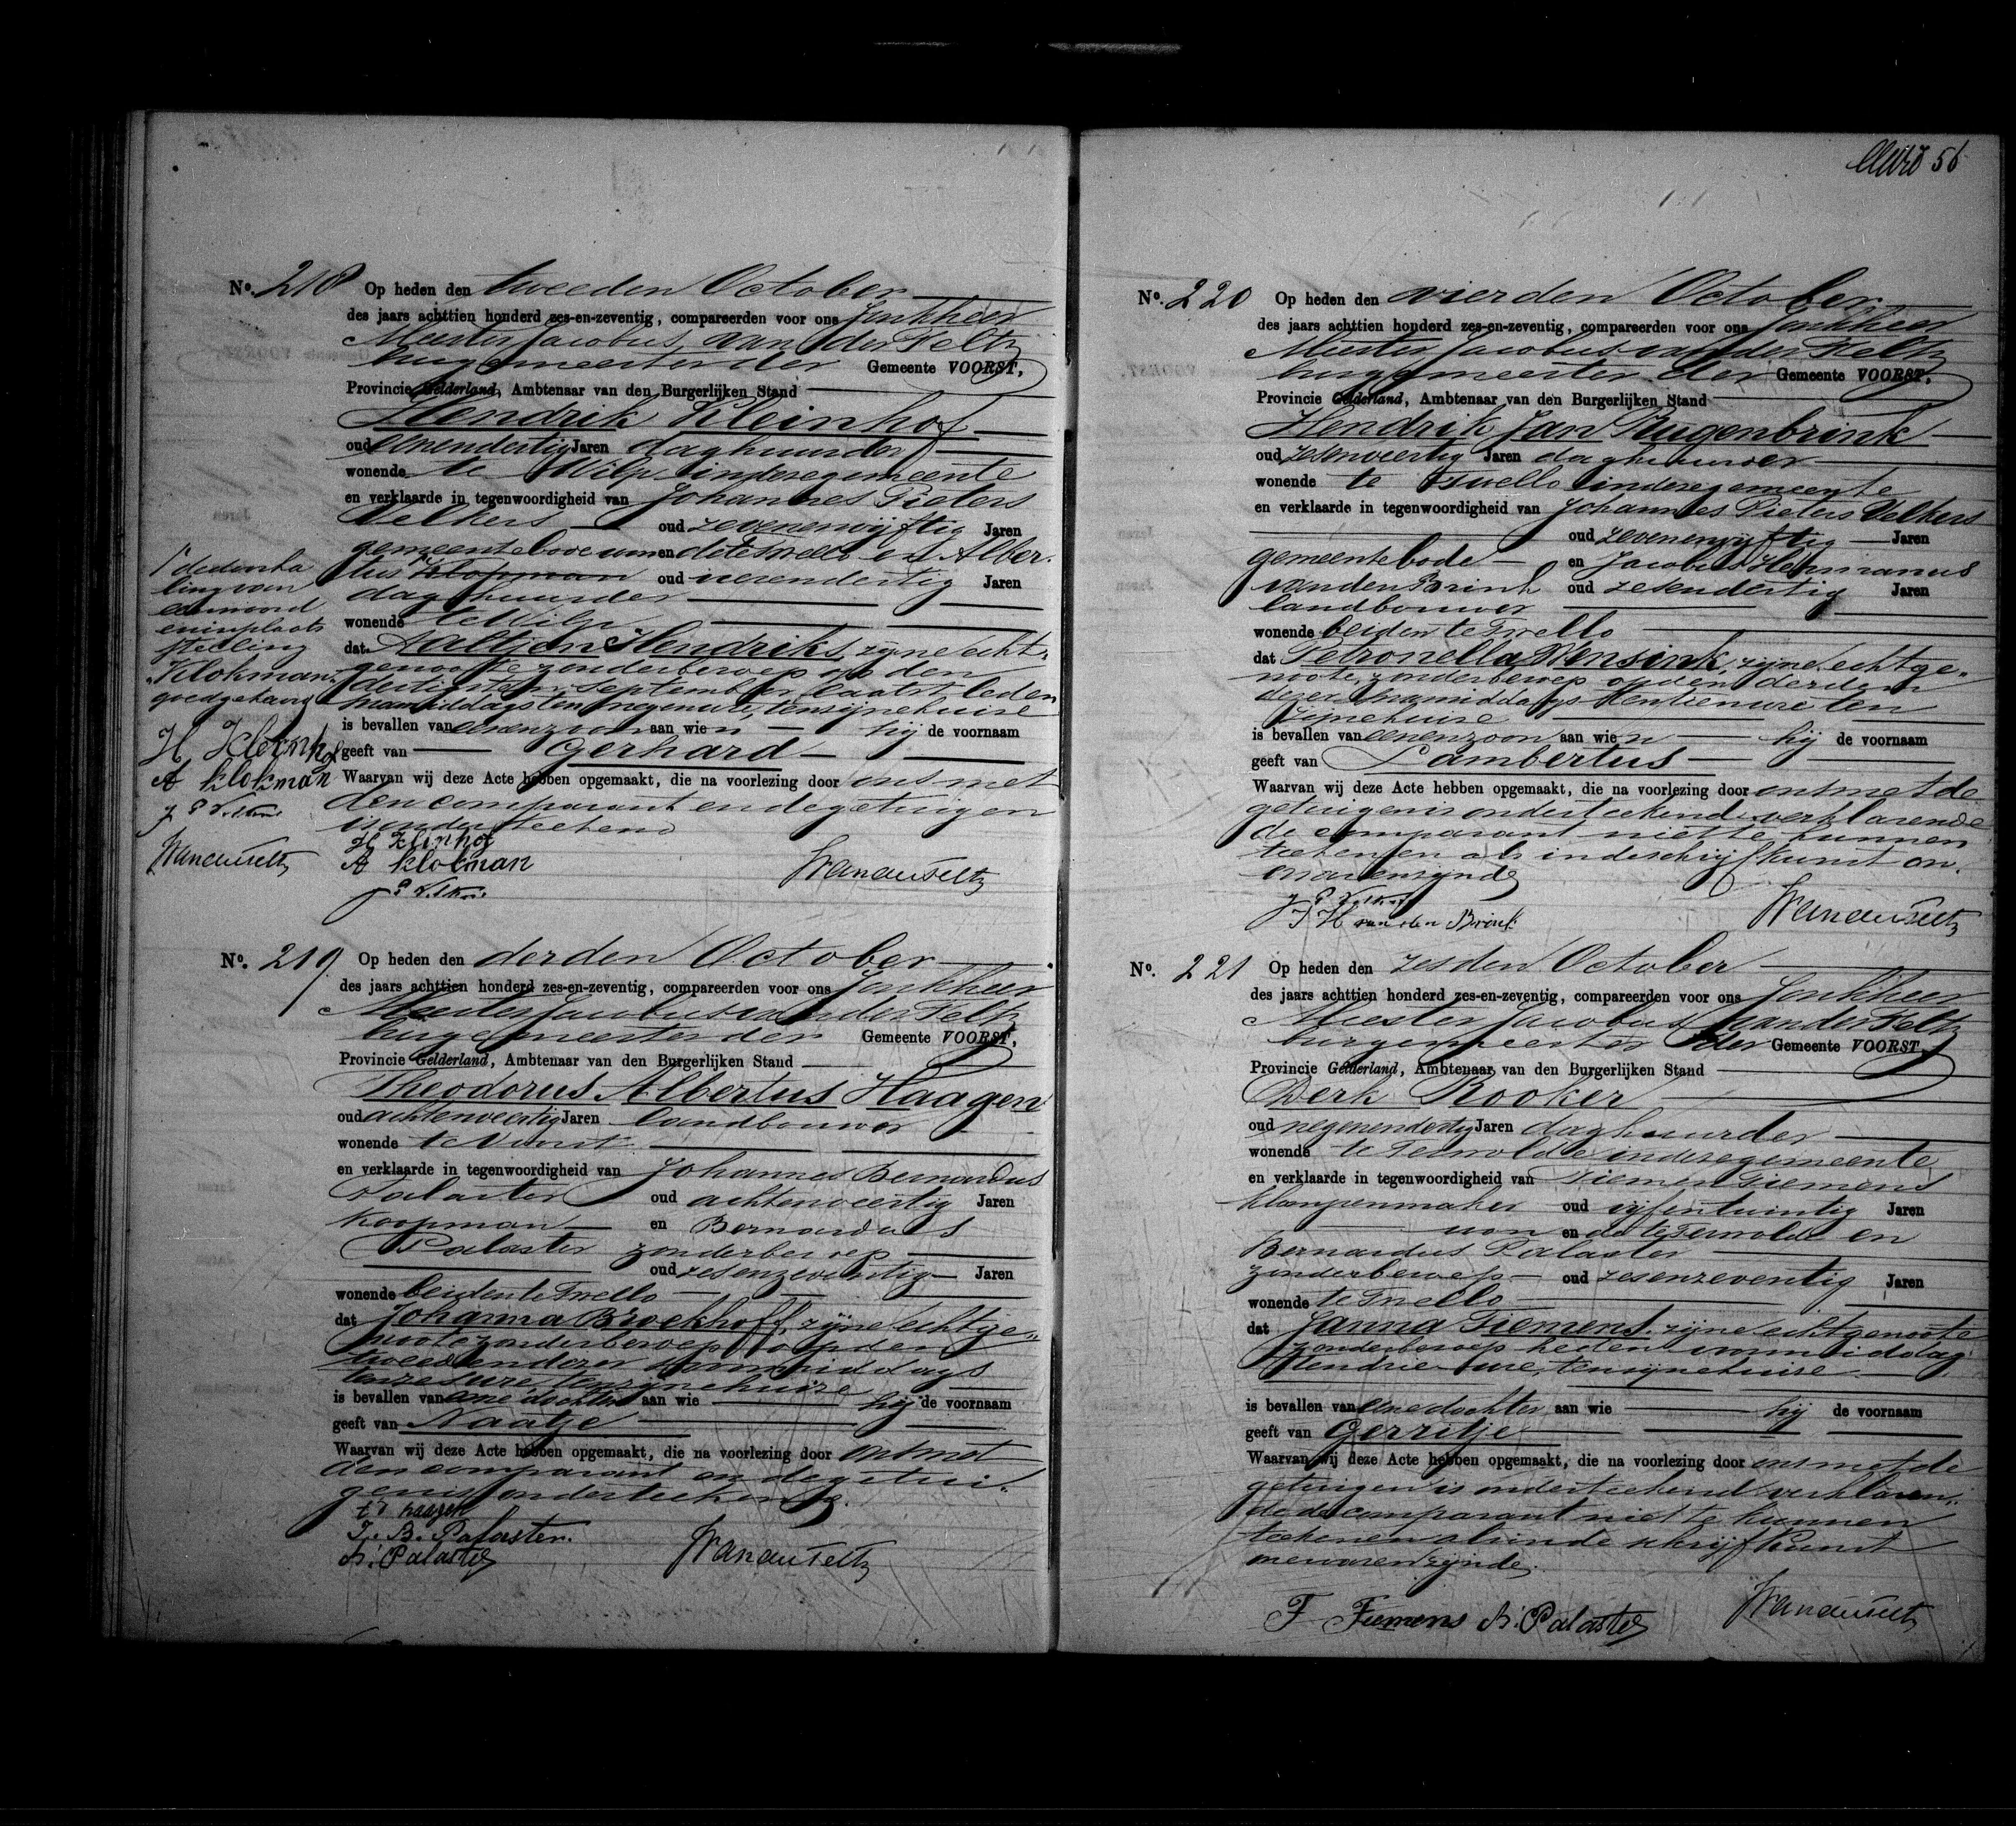 56
No. 218 Op heden den tweeden October
des jaars achttien honderd zes-en-zeventig, compareerden voor ons Jonkheer
Meester Jacobus van der Feltz
burgemeester der Gemeente VOORST,
Provincie Gelderland, Ambtenaar van den Burgerlijken Stand
Hendrik Kleinhof
oud eenendertig Jaren daghuurder
wonende te Wilp in deze gemeente
en verklaarde in tegenwoordigheid van Johannes Pieters
Velkers oud zevenenvijftig Jaren
gemeentebode wonende te Twello en Alber-
tus Klopman oud vierendertig Jaren
daghuurder
wonende te Wilp
dat Aaltjen Hendriks, zijne echt-
genoote zonder beroep op den
dertigsten September laatstleden
namiddags ten negen ure, ten zijnen huize
is bevallen van eenen zoon aan wien hij de voornaam
geeft van Gerhard
Waarvan wij deze Acte hebben opgemaakt, die na voorlezing door ons met
den comparant en de getuigen
is onderteekend
H Kleinhof
A klokman
J P Velkers
VanderFeltz
1e doorha
ling van
een woord
en in plaats
stelling
"Klokman"
goedgekeurd
H Kleinhof
A klokman
J P Velkers
VanderFeltz
No. 219 Op heden den derden October
des jaars achttien honderd zes-en-zeventig, compareerden voor ons Jonkheer
Meester Jacobus van der Feltz
burgemeester der Gemeente VOORST,
Provincie Gelderland, Ambtenaar van den Burgerlijken Stand
Theodorus Albertus Haagen
oud achtenveertig Jaren landbouwer
wonende te Voorst
en verklaarde in tegenwoordigheid van Johannes Bernardus
Palaster oud achtenveertig Jaren
Koopman en Bernardus
Palaster zonder beroep
oud zesenzeventig Jaren
wonende beiden te Twello
dat Johanna Broekhoff, zijne echtge-
noote zonder beroep op den
tweeden dezer voormiddags
ten zijnen huize
is bevallen van eene dochter aan wie hij de voornaam
geeft van Naatje
Waarvan wij deze Acte hebben opgemaakt, die na voorlezing door ons met
den comparant en de getui-
gen is onderteekend.
haagen
J. B. Palaster.
B. Palaster
VanderFeltz
No. 220 Op heden den vierden October
des jaars achttien honderd zes-en-zeventig, compareerden voor ons Jonkheer
Meester Jacobus van der Feltz
burgemeester der Gemeente VOORST,
Provincie Gelderland, Ambtenaar van den Burgerlijken Stand
Hendrik Jan Rugenbrink
oud zesenveertig Jaren daghuurder
wonende te Twello in deze gemeente
en verklaarde in tegenwoordigheid van Johannes Pieters Velkers
oud zevenenvijftig Jaren
gemeentebode en Jacobus Hermanus
van den Brink oud zesendertig Jaren
landbouwer
wonende beiden te Twello
dat Petronella Wensink, zijne echtge-
noote, zonder beroep op den derden
dezer namiddags ten tien ure ten
zijnen huize
is bevallen van eenen zoon aan wien hij de voornaam
geeft van Lambertus
Waarvan wij deze Acte hebben opgemaakt, die na voorlezing door ons met de
getuigen is onderteekend, verklarende
de comparant niet te kunnen
teekenen als in de schrijfkunst on-
ervaren zijnde
J P Velkers
J H van den Brink
VanderFeltz
No. 221 Op heden den zesden October
des jaars achttien honderd zes-en-zeventig, compareerden voor ons Jonkheer
Meester Jacobus van der Feltz
burgemeester der Gemeente VOORST,
Provincie Gelderland, Ambtenaar van den Burgerlijken Stand
Derk Kooker
oud negenendertig Jaren daghuurder
wonende te Terwolde in deze gemeente
en verklaarde in tegenwoordigheid van Tiemen Tiemens
klompenmaker oud vijfentwintig Jaren
wonende te Terwolde en
Bernardus Palaster
zonder beroep oud zesenzeventig Jaren
wonende te Twello
dat Janna Tiemens, zijne echtgenoote
zonder beroep heden voormiddag
ten drie ure, ten zijnen huize
is bevallen van eene dochter aan wie hij de voornaam
geeft van Gerritje
Waarvan wij deze Acte hebben opgemaakt, die na voorlezing door ons met de
getuigen is onderteekend verklaren-
de de comparant niet te kunnen
teekenen als in de schrijfkunst
onervaren zijnde.
T Tiemens B. Palaster
VanderFeltz